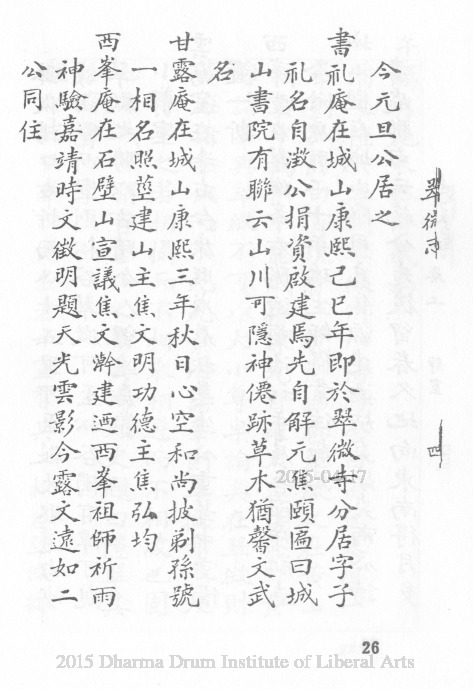 今元旦公居之
書禮庵在城山康熙己巳年即於翠微寺分居字子
禮名自澂公捐資啟建焉先自解元焦頤匾曰城
山書院有聯云山川可隱神僊跡草木猶馨文武
名
甘露庵在城山康熙三年秋日心空和尚披剃孫號
一相名照莖建山主焦文明功德主焦弘均
西峯庵在石壁山宣議焦文澣建迺西峯祖師祈雨
神驗嘉靖時文徵明題天光雲影今露文遠如二
公同住
四
2015-04-17
26
2015 Dharma Drum Institute of Liberal Arts